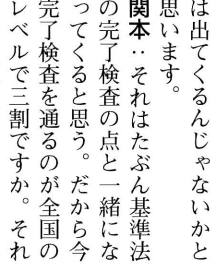 は出てくるんじゃないかと
思います。
関本：それはたぶん基準法
の完了検査の点と一緒にな
ってくると思う。だから今
完了検査を通るのが全国の
レベルで三割ですか。それ